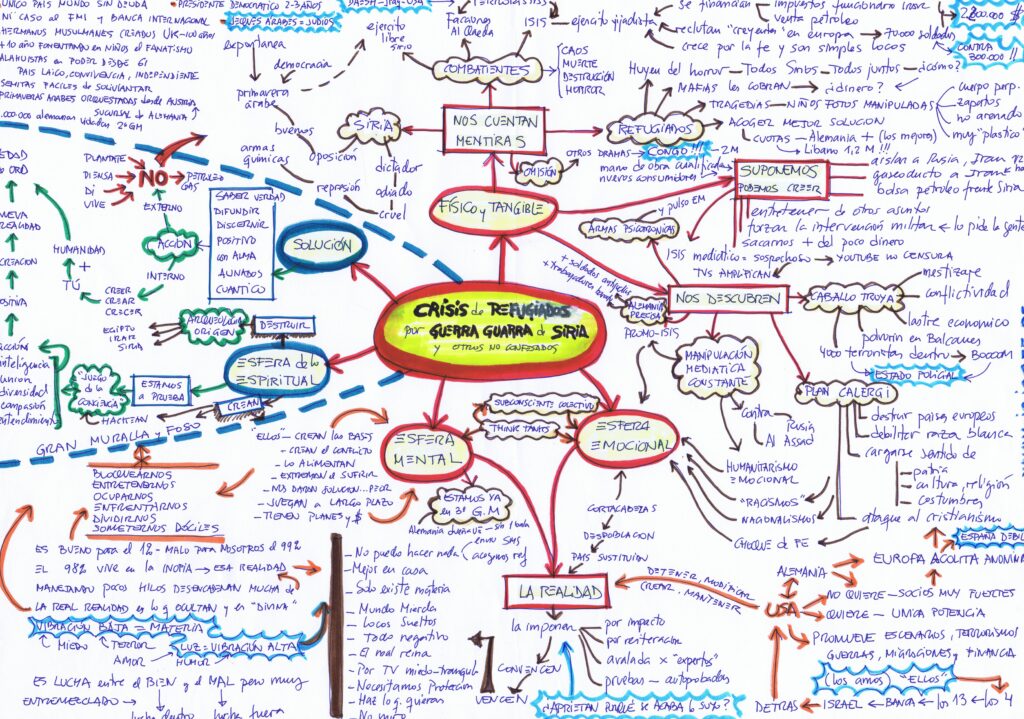 ÚNICO PAÍS MUNDO SIN DEUDA
NI CASO al FMI y BANCA INTERNACIONAL
HERMANOS MUSULMANES CREADOS UK-100 años
+10 AÑO FOMENTANDO en NIÑOS el FANATISMO
ALAHUISTAS en PODER DESDE 61
PAIS LAICO, CONVIVENCIA, INDEPENDIENTE
SEMITAS FACILES de SOLIVIANTAR
PRIMAVERAS ARABES ORQUESTADAS desde
SUCURSAL de ALEMANIA
000.000 alemanas violadas 2ª GM
PRESIDENTE DEMOCRATICO 2-3 AÑOS
JEQUES ARABES = JUDIOS
espontanea
democracia
primavera arabe
ejercito libre sirio
buenos
SIRIA
armas químicas
oposición
represión
dictador
odiado
cruel
Facciones Al Qaeda
ISIS
ejercito yijadista
COMBATIENTES
CAOS
MUERTE
DESTRUCCIÓN
HORROR
NOS CUENTAN MENTIRAS
OMISIÓN
REFUGIADOS
se financian
impuestos funcionario
venta petroleo
2.800.000 $
reclutan "creyentes" en europa
70000 soldados
crece por la fe y son simples locos
CONTRA 300.000 !!
Huyen del horror — Todos Sirios — Todos juntos — ¿cómo?
MAFIAS les COBRAN
¿dinero?
TRAGEDIAS — NIÑOS FOTOS MANIPULADAS
cuerpo perp.
zapatos
no arenado
muy "plastico"
ACOGER MEJOR SOLUCION
CUOTAS — Alemania + (los mejores)
Líbano 1,2 M !!!
OTROS DRAMAS
CONGO!!!
2M
mano de obra cualificada
nuevos consumidores
SUPONEMOS
PODEMOS CREER
aislan a Rusia, Iran
gaseoducto a Irak
bolsa petroleo frente Siria
entretener de otros asuntos
forzar la intervención militar
lo pide la gente
sacarnos + del poco dinero
FÍSICO y TANGIBLE
ARMAS PSICOTRONICAS
y pulso EM
ISIS mediático = sospechoso
YOUTUBE no CENSURA
TVs AMPLIFICAN
+ soldados
+ trabajadores
ALEMANIA PRECISA
PROMO-ISIS
NOS DESCUBREN
CABALLO TROYA
mestizaje
conflictividad
lastre economico
polvorín en Balcanes
4000 terroristas dentro
BOOOOM
ESTADO POLICIAL
MANIPULACIÓN MEDIATICA CONSTANTE
contra
Rusia
Al Assad
PLAN CALERGI
destruir paises europeos
debilitar raza blanca
cargarse sentido de
patria
cultura, religión
costumbres
ataque al cristianismo
HUMANITARISMO EMOCIONAL
"RACISMOS"
NACIONALISMOS
CHOQUE de FE
NO
PLANTATE
PIENSA
DI
VIVE
PETROLEO
GAS
EXTERNO
ACCIÓN
INTERNO
SABER VERDAD
DIFUNDIR
DISCERNIR
POSITIVO
con ALMA
AUNADOS
CUANTICO
SOLUCIÓN
EDAD de ORO
NUEVA REALIDAD
CREACION
HUMANIDAD
+
TÚ
CREER
CREAR
CRECER
CRISIS de REFUGIADOS
por GUERRA GUARRA d SIRIA
y OTROS NO CONFESADOS
ARQUEOLOGIA ORIGEN
EGIPTO
IRAK
SIRIA
DESTRUIR
ESFERA de lo ESPIRITUAL
CREAN
ESTAMOS a PRUEBA
"JUEGO de la CONCIENCIA"
HACKEAN
acción
inteligencia
unión
diversidad
compasión
entendimiento
GRAN MURALLA y FOSO
BLOQUEARNOS
ENTRETENERNOS
OCUPARNOS
ENFRENTARNOS
DIVIDIRNOS
SOMETERNOS DÓCILES
"ELLOS" — CREAN las BASES
- CREAN el CONFLICTO
- LO ALIMENTAN
- EXTREMAN el SUFRIR
- NOS DARÁN SOLUCION...PEOR
- JUEGAN a LARGO PLAZO
- TIENEN PLANES y $
ESFERA MENTAL
SUBCONSCIENTE COLECTIVO
THINK TANKS
ESFERA EMOCIONAL
ESTAMOS YA en 3ª G.M
CORTACABEZAS
DESPOBLACIÓN
PAIS SUSTITUCION
ES BUENO para el 1% - MALO para NOSOTROS el 99%
EL 98% VIVE en la INOPIA → ESA REALIDAD
MANEJANDO pocos HILOS DESENCADENAN MUCHA de
LA REAL REALIDAD es lo q OCULTAN y es "DIVINA"
VIBRACIÓN BAJA = MATERIA
MIEDO
TERROR
LUZ = VIBRACIÓN ALTA
AMOR
HUMOR
ES LUCHA entre el BIEN y el MAL pero muy
ENTREMEZCLADO
lucha dentro
lucha fuera
- No puedo hacer nada
- Mejor en casa
- Solo existe materia
- Mundo Mierda
- Locos Sueltos
- Todo negativo
- El mal reina
- Por TV miedo-tranquila
- Necesitamos Protección
- Haz lo q. quieras
LA REALIDAD
la imponen
por impacto
por reiteración
avalada x "expertos"
pruebas - autoprobadas
CONVENCEN
VENCEN
¿APRIETAN PORQUE se ACABA lo SUYO?
DETENER, MODIFICAR
CREAR, MANTENER
USA
ALEMANIA
EUROPA ACOLITA
ESPAÑA DEBIL
NO QUIERE — SOCIOS MUY FUERTES
QUIERE — UNICA POTENCIA
PROMUEVE ESCENARIOS, TERRORISMOS
GUERRAS, MIGRACIONES y FINANCIA
(los amos) "ELLOS"
DETRAS ← ISRAEL ← BANCA ← los 13 ← los 4